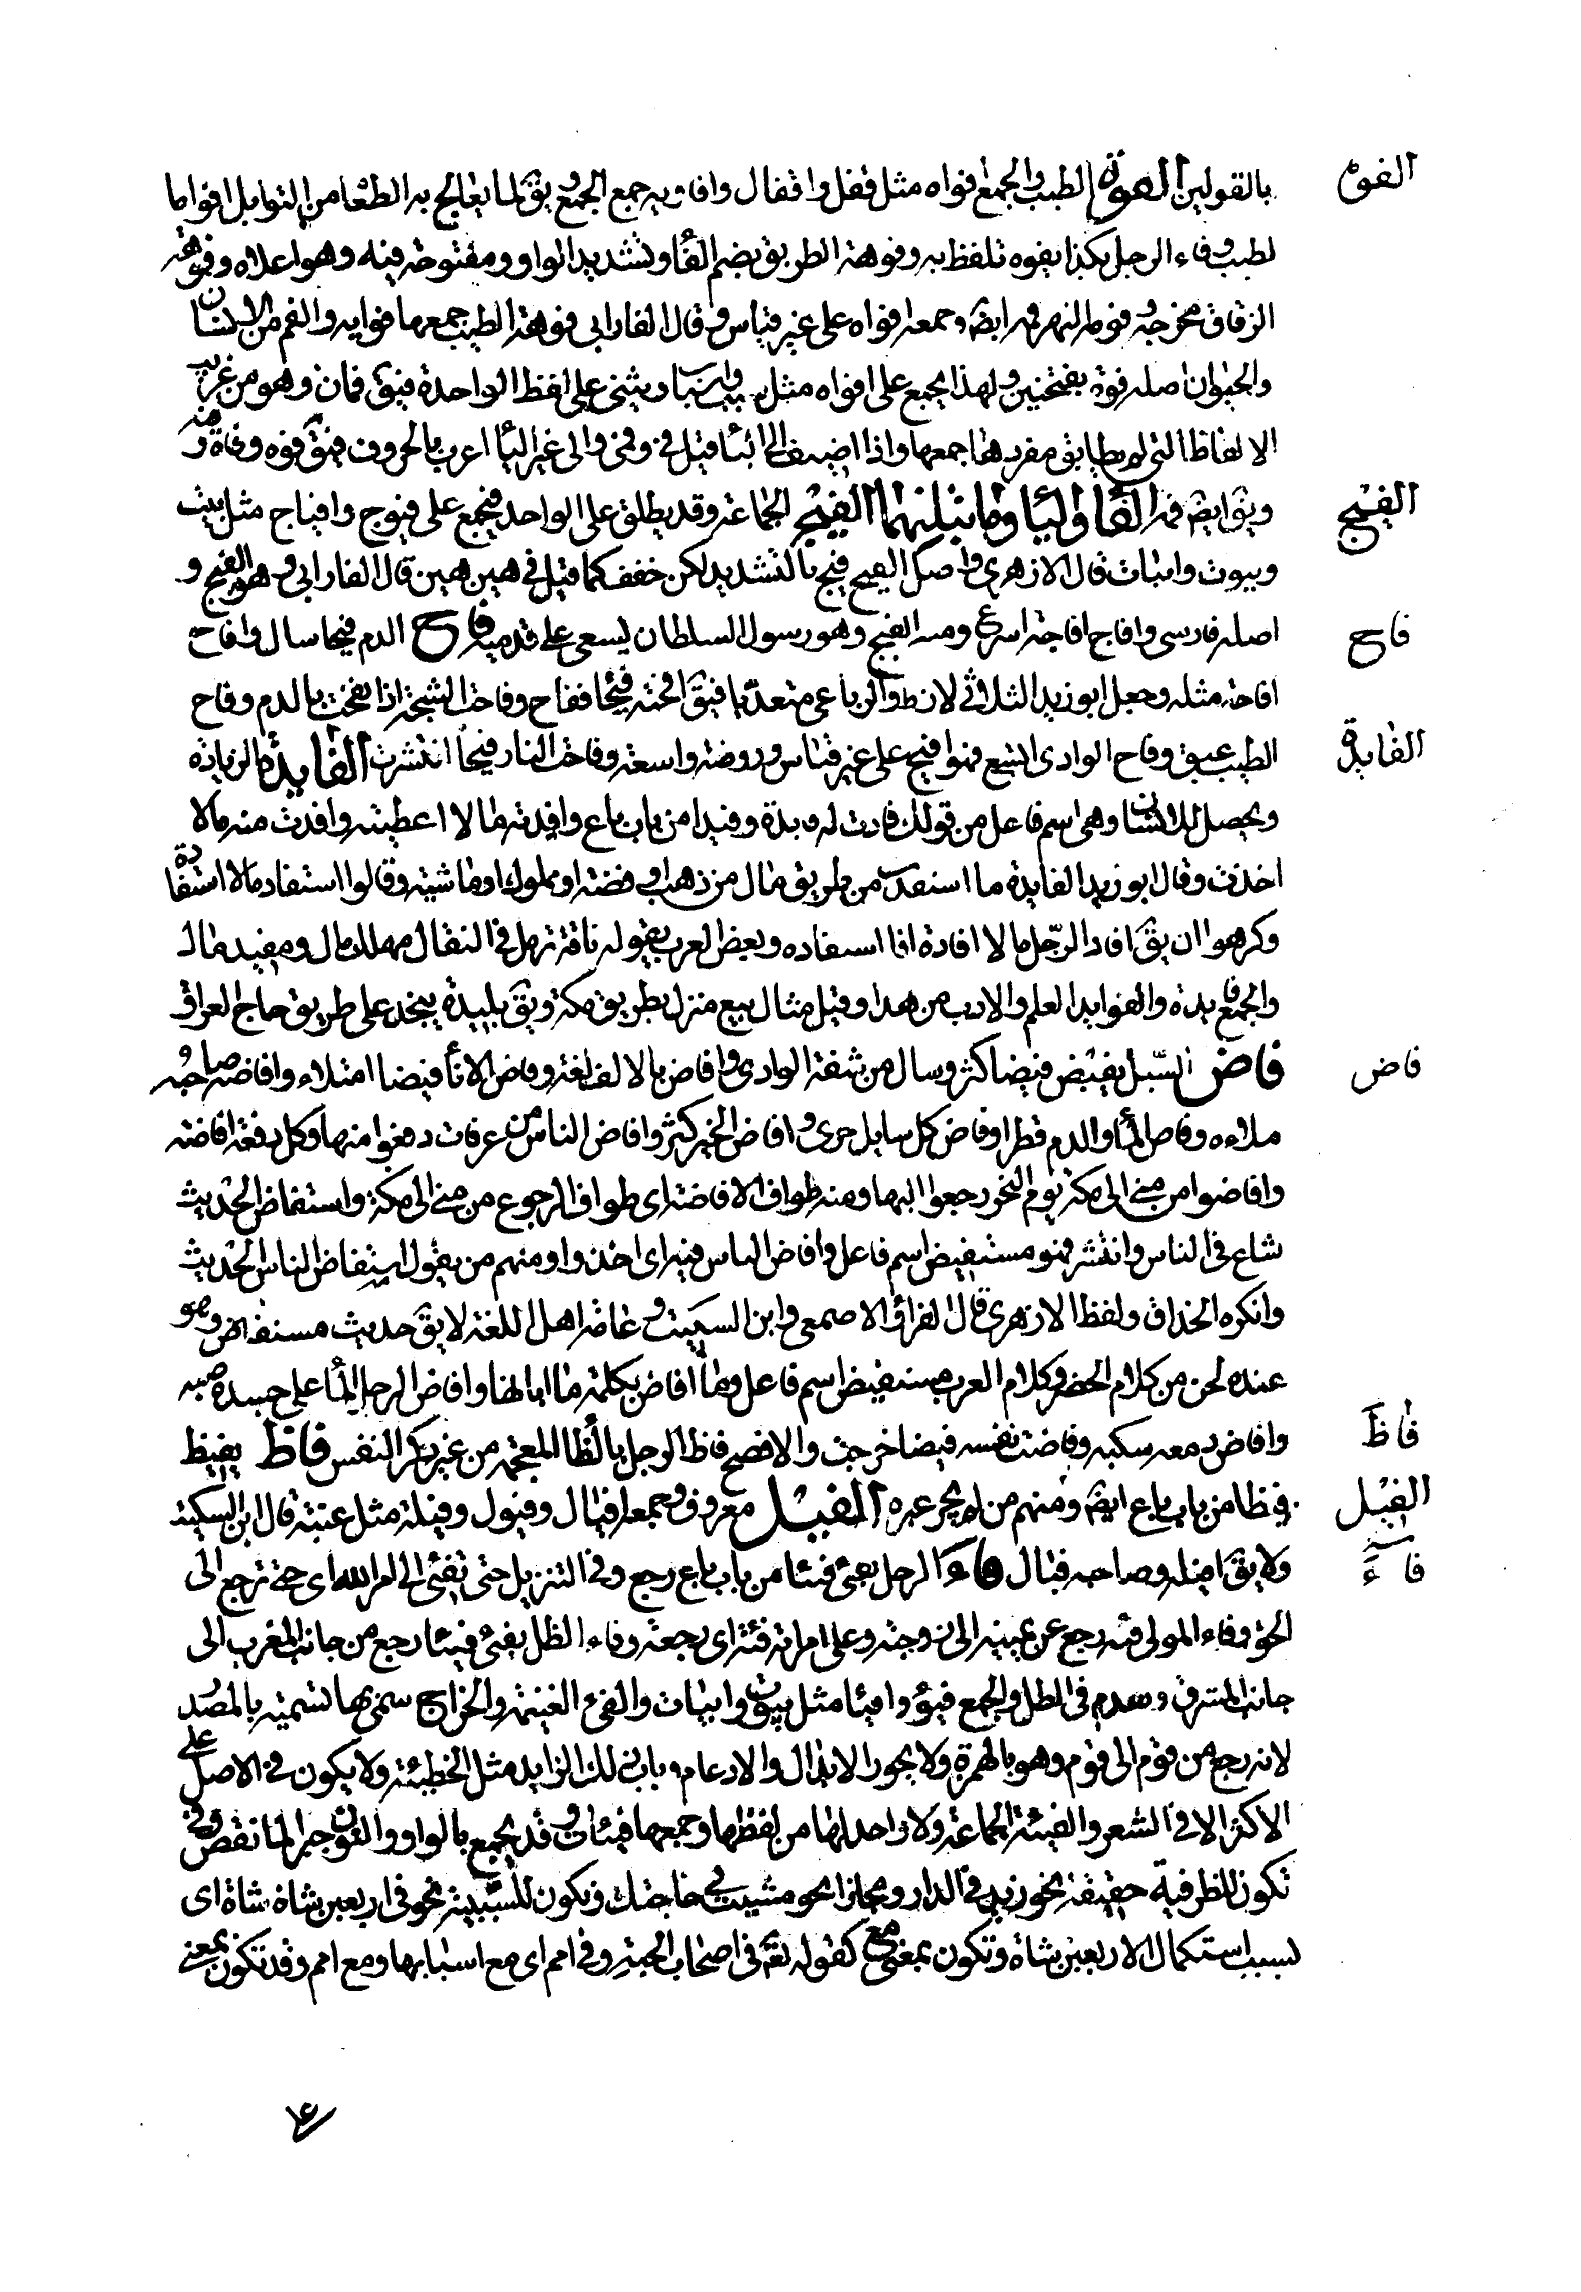 الفوه
بالقولين الفوه الطيب والجمع افواه مثل قفل واقفال وافاويه جمع الجمع ويقٓ لما يعالج به الطعام من التوابل افواه ا
لطيب وفاء الرجل بكذا يفوه تلفظ به وفوهة الطريق بضم الفا وتشديد الواو ومفتوحة فيه وهو اعلاه وفوهة
الزقاق مخرجه وفوهة النهر فمه ايضٓ وجمعه افواه على غير قياس وقال الفارابي فوهة الطيب جمعها فوايه والفم من الانسان
والحيوان اصله فوه بفتحتين ولهذا يجمع على افواه مثل سبب واسباب ويثنى على لفظ الواحدة فيقٓ فمان وهو من غريب
الالفاظ التي لم يطابق مفردها جمعها واذا اضيف الى اليا قيل في وفمي والى غير اليا اعرب بالحروف فيقٓ فوه وفاه وفيه
الفيج
ويقٓ ايضٓ فمه الفا واليا وما يثلثهما الفيج الجماعة وقد يطلق على الواحد فيجمع على فيوج وافياج مثل بيت
وبيوت وابيات قال الازهري واصل الفيج فيج بالتشديد لكن خفف كما قيل في هين هين قال الفارابي وهو الفيج و
فاح
اصله فارسي وافاج افاجة اسرع ومنه الفيج وهو رسول السلطان يسعى على قدميه فاح الدم فيحا سال وافاح
افاحة مثله وجعل ابو زيد الثلاثي لازما والرباعي متعديا فيقٓ افحته فيحا ففاح وفاحت الشجة اذا نفحت بالدم وفاح
الفايدة
الطيب عبق وفاح الوادي اتسع فهو افيح على غير قياس وروضة واسعة وفاحت النار فيحا انتشرت الفايدة الزيادة
ويحصل للانسان وهي اسم فاعل من قولك فادت له فايدة وفيدا من باب باع وافدته مالا اعطيته وافدت منه مالا
اخذت وقال ابو زيد الفايدة ما استفدت من طريق مال من ذهب او فضة او مملوك او ماشية وقالوا استفاد مالا استفادة
وكرهوا ان يقٓ افاد الرجل مالا افادة اذا استفاده وبعض العرب يقوله ناقة ترمل في النقال مهلك مال ومفيد مال
والجمع فايدة والفوايد العلم والادب من هذا وقيل مثال بيع منزل بطريق مكة ويقٓ بليدة بنجد على طريق حاج العراق
فاض
فاض السيل يفيض فيضا كثر وسال من شفة الوادي وافاض بالالف لغة وفاض الانا فيضا امتلاء وافاضه صاحبه
ملاءه وفاض الما والدم قطر او فاض كل سايل جرى وافاض الخير كثر وافاض الناس من عرفات دفعوا منها وكل دفعة افاضة
وافاضوا من منى الى مكة يوم النحر رجعوا اليها ومنه طواف الافاضة اي طواف الرجوع من منى الى مكة واستفاض الحديث
شاع في الناس وانتشر فهو مستفيض اسم فاعل وافاض الناس فيه اي اخذوا ومنهم من يقول استفاض الناس الحديث
وانكره الحذاق ولفظ الازهري قال الفرا والاصمعي وابن السكيت وعامة اهل اللغة لا يقٓ حديث مستفاض وهو
عنده لحن من كلام الحضر وكلام العرب مستفيض اسم فاعل وما افاض بكلمة ما ابانها وافاض الرجل الما على جسده صبه
فاظ
وافاض دمعه سكبه وفاضت نفسه فيضا خرجت والافصح فاظ الرجل بالظا المعجمة من غير ذكر النفس فاظ يفيظ
الفيل
فيظا من باب باع ايضٓ ومنهم من لم يجز غيره الفيل معروف وجمعه افيال وفيول وفيلة مثل عنبة قال ابن السكيت
فاء
ولا يقٓ افيلة وصاحبه فيال فاء الرجل يفئ فيئا من باب باع رجع وفي التنزيل حتى تفئ الى امر الله اي حتى ترجع الى
الحق وفاء المولى فيئه رجع عن يمينه الى زوجته وعلى امراته فئة اي رجعة وفاء الظل يفئ فيئا رجع من جانب المغرب الى
جانب المشرق في الظل والجمع فيؤ وافيا مثل بيوت وابيات والفئ الغنيمة والخراج سمي بها تسمية بالمصدر
لانه رجع من قوم الى قوم وهو بالهمزة ولا يجوز الابدال والادغام وباب ذلك الزايد مثل الخطيئة ولا يكون في الاصل على
الاكثر الا في الشعر والفيئة الجماعة ولا واحد لها من لفظها وجمعها فئات وقد يجمع بالواو والنون جبرا لما نقص وفي
تكون للظرفية حقيقة نحو زيد في الدار ومجازا نحو مشيت في حاجتك وتكون للسببية نحو في اربعين شاة شاة اي
لسبب استكمال الاربعين شاة وتكون بمعنى مع كقوله تعٓ في اصحاب الجنة وفي امم اي مع اصحابها ومع امم وقد تكون بمعنى